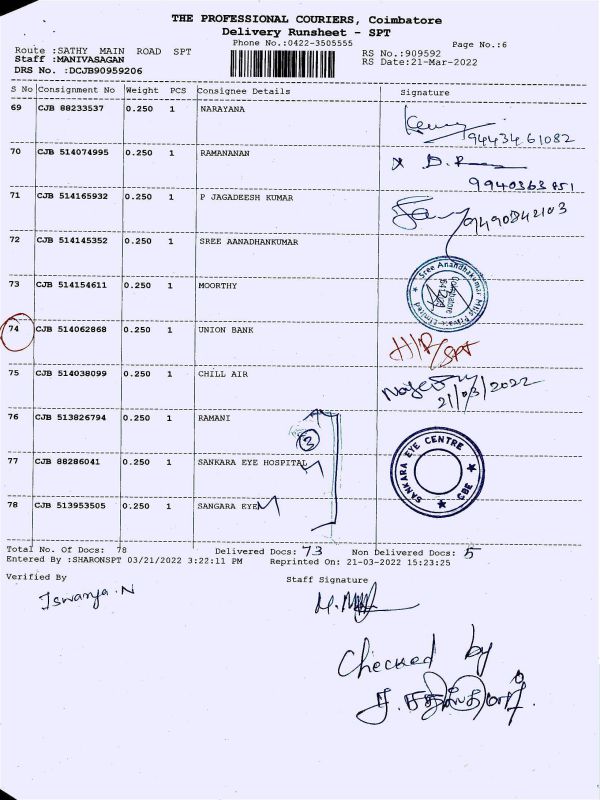 THE PROFESSIONAL COURIERS, Coimbatore
Delivery Runsheet - SPT
Phone No.:0422-3505555
Page No.:6
Route :SATHY MAIN ROAD SPT
RS No.:909592
Staff :MANIVASAGAN
RS Date:21-Mar-2022
DRS No. :DCJB90959206
S No Consignment No Weight PCS Consignee Details Signature
69 CJB 88233537 0.250 1 NARAYANA
94434 61082
70 CJB 514074995 0.250 1 RAMANANAN
9940363851
71 CJB 514165932 0.250 1 P JAGADEESH KUMAR
9490842103
72 CJB 514145352 0.250 1 SREE AANADHANKUMAR
73 CJB 514154611 0.250 1 MOORTHY
Sree Anandhakumar Mills Private Limited
Coimbatore
74 CJB 514062868 0.250 1 UNION BANK
H/R/SPT
75 CJB 514038099 0.250 1 CHILL AIR
21/03/2022
76 CJB 513826794 0.250 1 RAMANI
3
77 CJB 88286041 0.250 1 SANKARA EYE HOSPITAL
SANKARA EYE CENTRE
CBE
78 CJB 513953505 0.250 1 SANGARA EYE
Total No. Of Docs: 78 Delivered Docs: 73 Non Delivered Docs: 5
Entered By :SHARONSPT 03/21/2022 3:22:11 PM Reprinted On: 21-03-2022 15:23:25
Verified By Staff Signature
Iswarya.N
Checked by